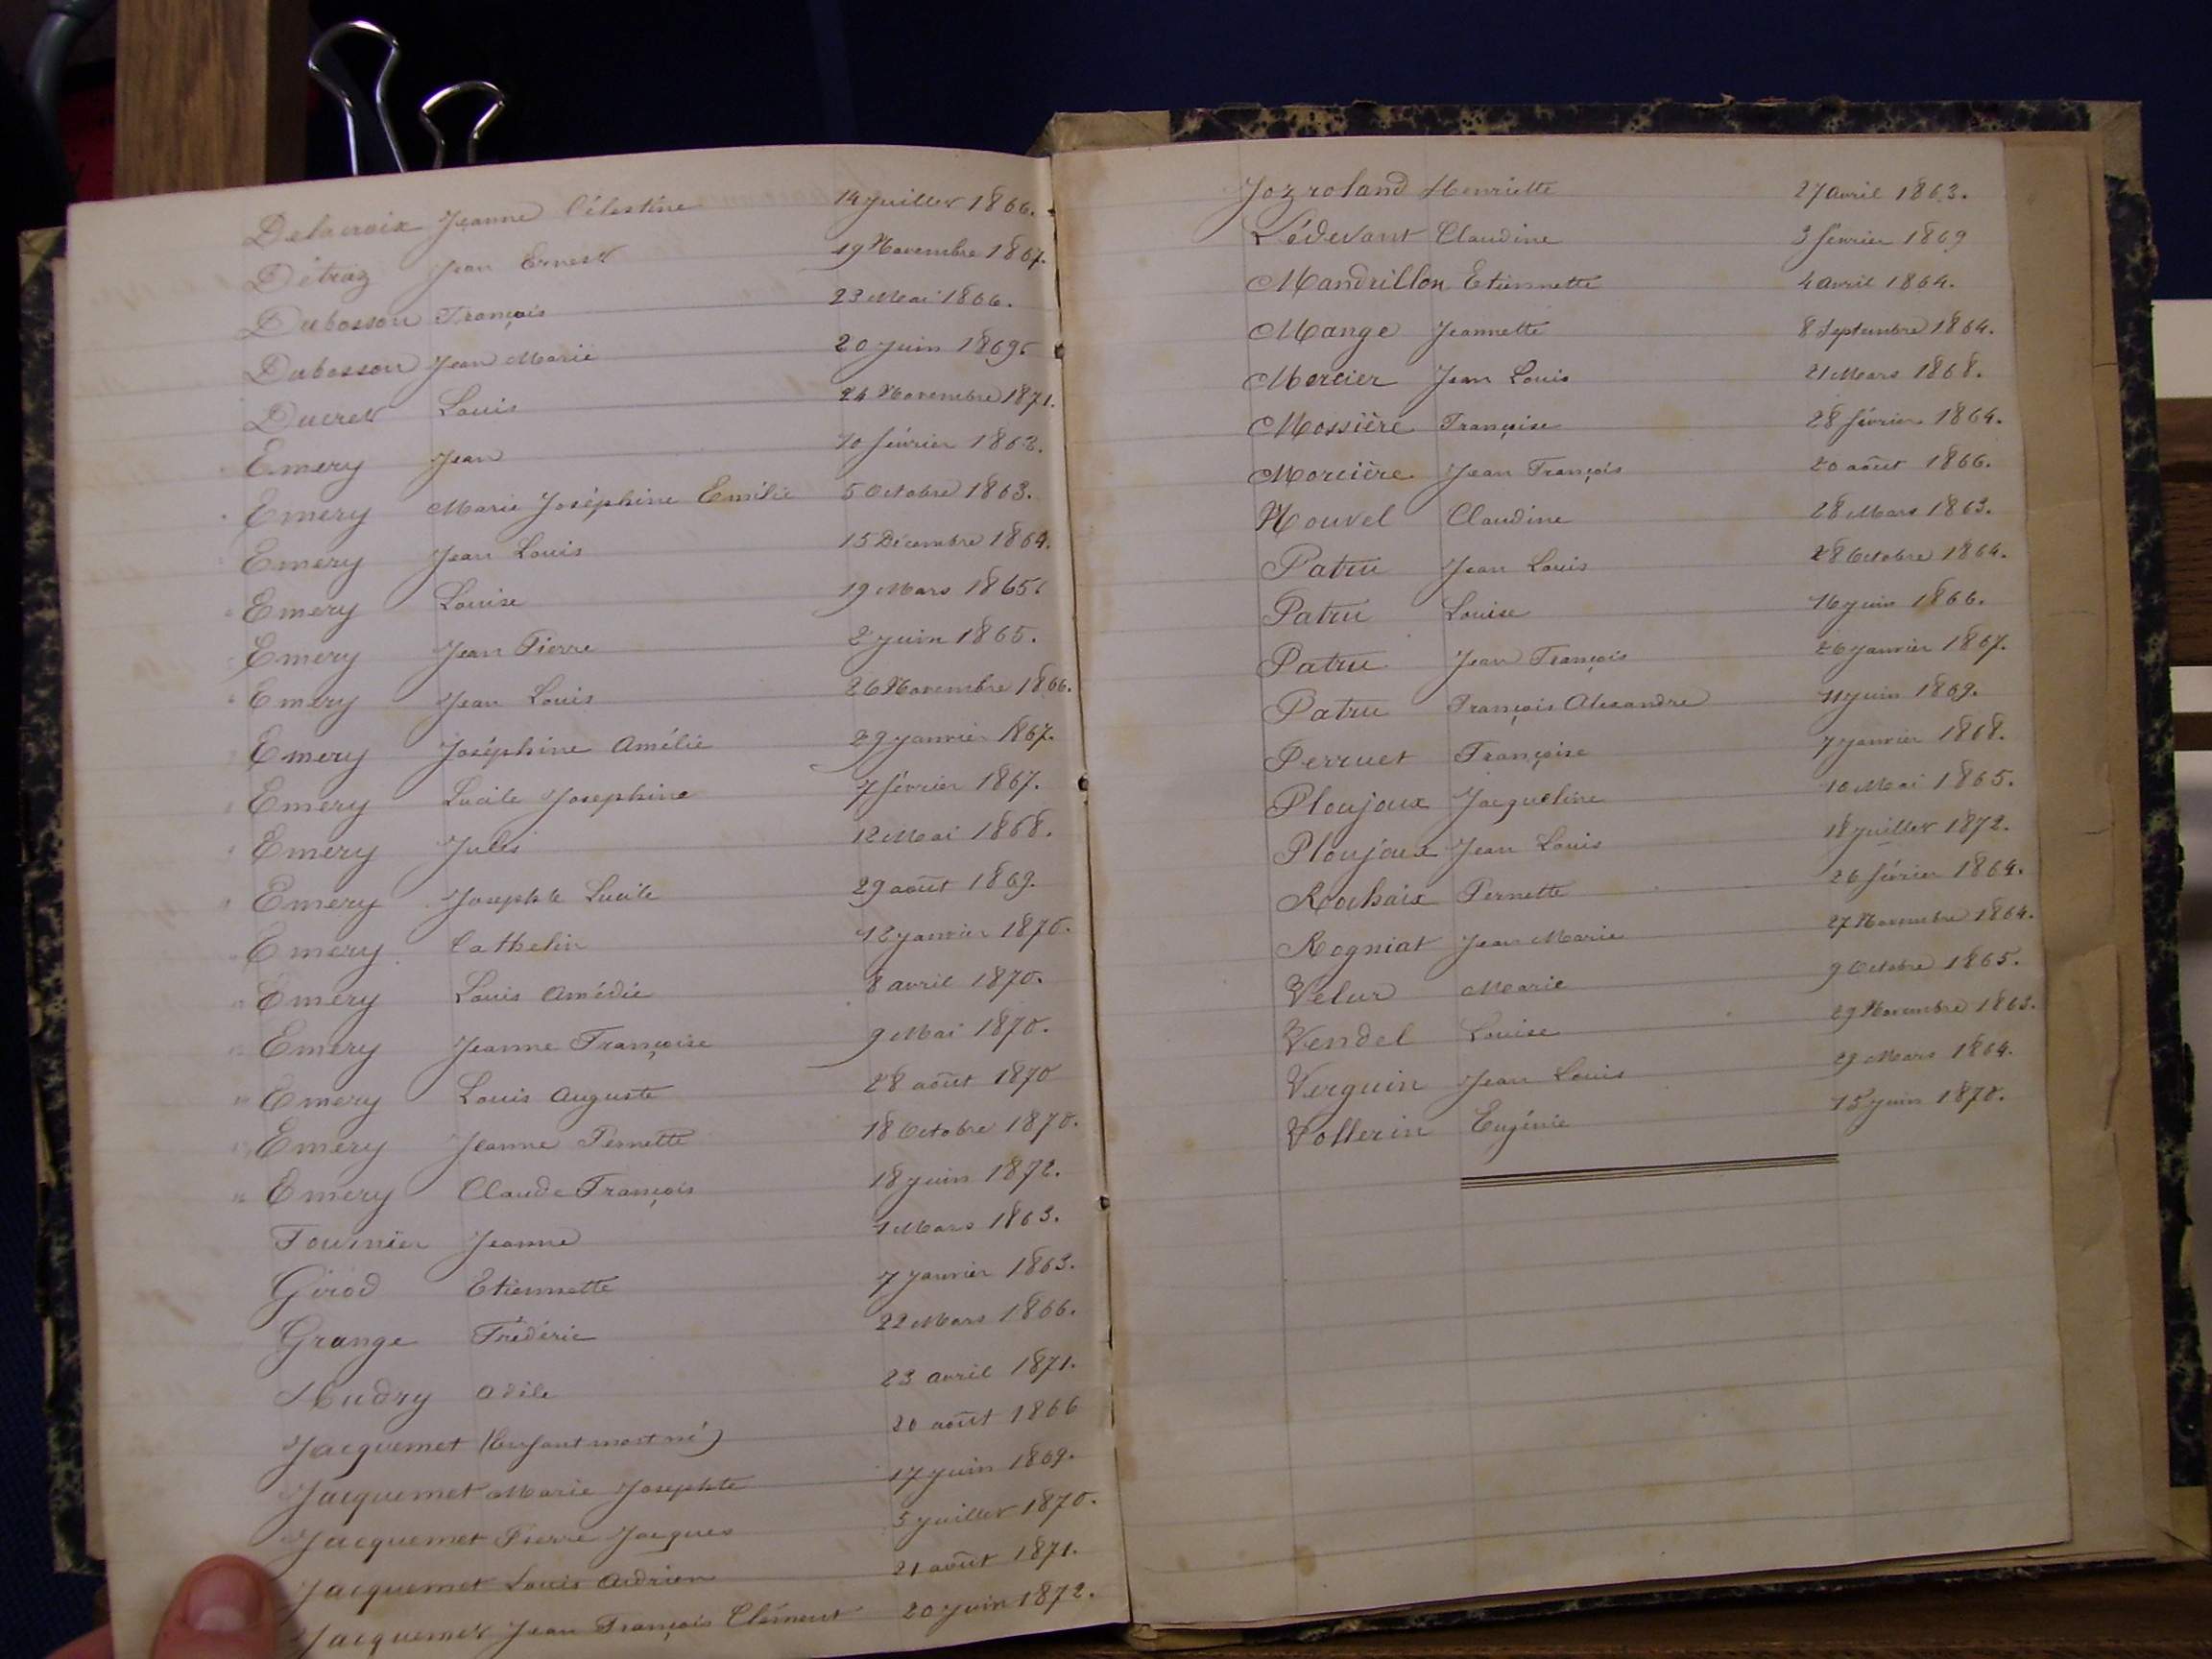 Delacroix Jeanne Célestine 14 juillet 1866.
Détraz Jean Ernest 19 Novembre 1867.
Dubosson François 23 Mai 1866.
Dubosson Jean Marie 20 juin 1869.
Ducret Louis 24 Novembre 1871.
Emery Jean 10 février 1862.
Emery Marie Joséphine Emélie 5 Octobre 1863.
Emery Jean Louis 15 Décembre 1864.
Emery Louise 19 Mars 1865.
Emery Jean Pierre 2 juin 1865.
Emery Jean Louis 26 Novembre 1866.
Emery Joséphine Amélie 29 janvier 1867.
Emery Lucile Josephine 7 février 1867.
Emery Jules 12 Mai 1868.
Emery Josephte Lucile 29 août 1869.
Emery Cathelin 12 janvier 1870.
Emery Louis Amédée 8 avril 1870.
Emery Jeanne Françoise 9 Mai 1870.
Emery Louis Auguste 28 août 1870
Emery Jeanne Pernette 18 Octobre 1870.
Emery Claude François 18 juin 1872.
Fournier Jeanne 1 Mars 1863.
Girod Etiennette 7 janvier 1863.
Grange Frédéric 22 Mars 1866.
Hudry Odile 23 avril 1871.
Jacquemet (Enfant mort né) 20 août 1866
Jacquemet Marie Josephte 17 juin 1869.
Jacquemet Pierre Jacques 5 juillet 1870.
Jacquemet Louis Adrien 21 août 1871.
Jacquemet Jean François Clément 20 juin 1872.
Jozroland Henriette 27 avril 1863.
Lédevant Claudine 3 février 1869
Mandrillon Etiennette 4 avril 1864.
Mange Jeannette 8 Septembre 1864.
Mercier Jean Louis 21 Mars 1868.
Mossière Françoise 28 février 1864.
Morcière Jean François 20 août 1866.
Nouvel Claudine 28 Mars 1863.
Patru Jean Louis 28 Octobre 1864.
Patru Louise 16 juin 1866.
Patru Jean François 26 janvier 1867.
Patru François Alexandre 11 juin 1869.
Perruet Françoise 7 janvier 1868.
Ploujoux Jacqueline 10 Mai 1865.
Ploujoux Jean Louis 18 juillet 1872.
Rochaix Pernette 26 février 1864.
Rogniat Jean Marie 27 Novembre 1864.
Velur Marie 9 Octobre 1865.
Vendel Louise 29 Novembre 1863.
Verguin Jean Louis 29 Mars 1864.
Vollerin Eugénie 15 juin 1870.